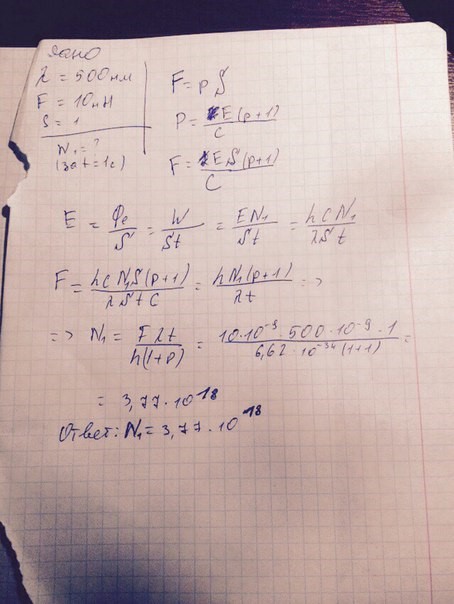 Дано
λ = 500 нм
F = 10 нН
S = 1
N₁ = ?
(за t = 1c)
F = p S
P = E(p+1)/C
F = ES(p+1)/C
E = Φe/S = W/St = EN₁/St = hCN₁/λSt
F = hCN₁S(p+1)/λStC = hN₁(p+1)/λt =>
=> N₁ = Fλt/h(1+p) = 10·10⁻⁹·500·10⁻⁹·1/6,62·10⁻³⁴(1+1) =
= 3,77·10¹⁸
Ответ: N₁ = 3,77·10¹⁸